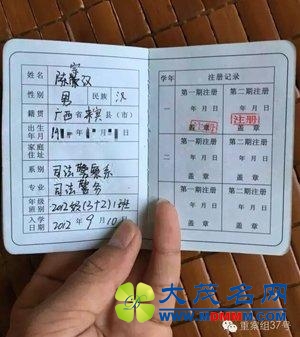 姓名 陈豪汉
性别 男 民族 汉
籍贯 广西省来宾县(市)
出生年月
家庭住址
系别 司法警察系
专业 司法警务
年级班别 2012级(3+2)1班
入学日期 2012年9月10日
学年 注册记录
第一期注册 第二期注册
一 年 月 日 年 月 日
注册 注册
盖 章 盖 章
第一期注册 第二期注册
二 年 月 日 年 月 日
盖 章 盖 章
第一期注册 第二期注册
年 月 日 年 月 日
盖 章 盖 章
大茂名网
重案组37号